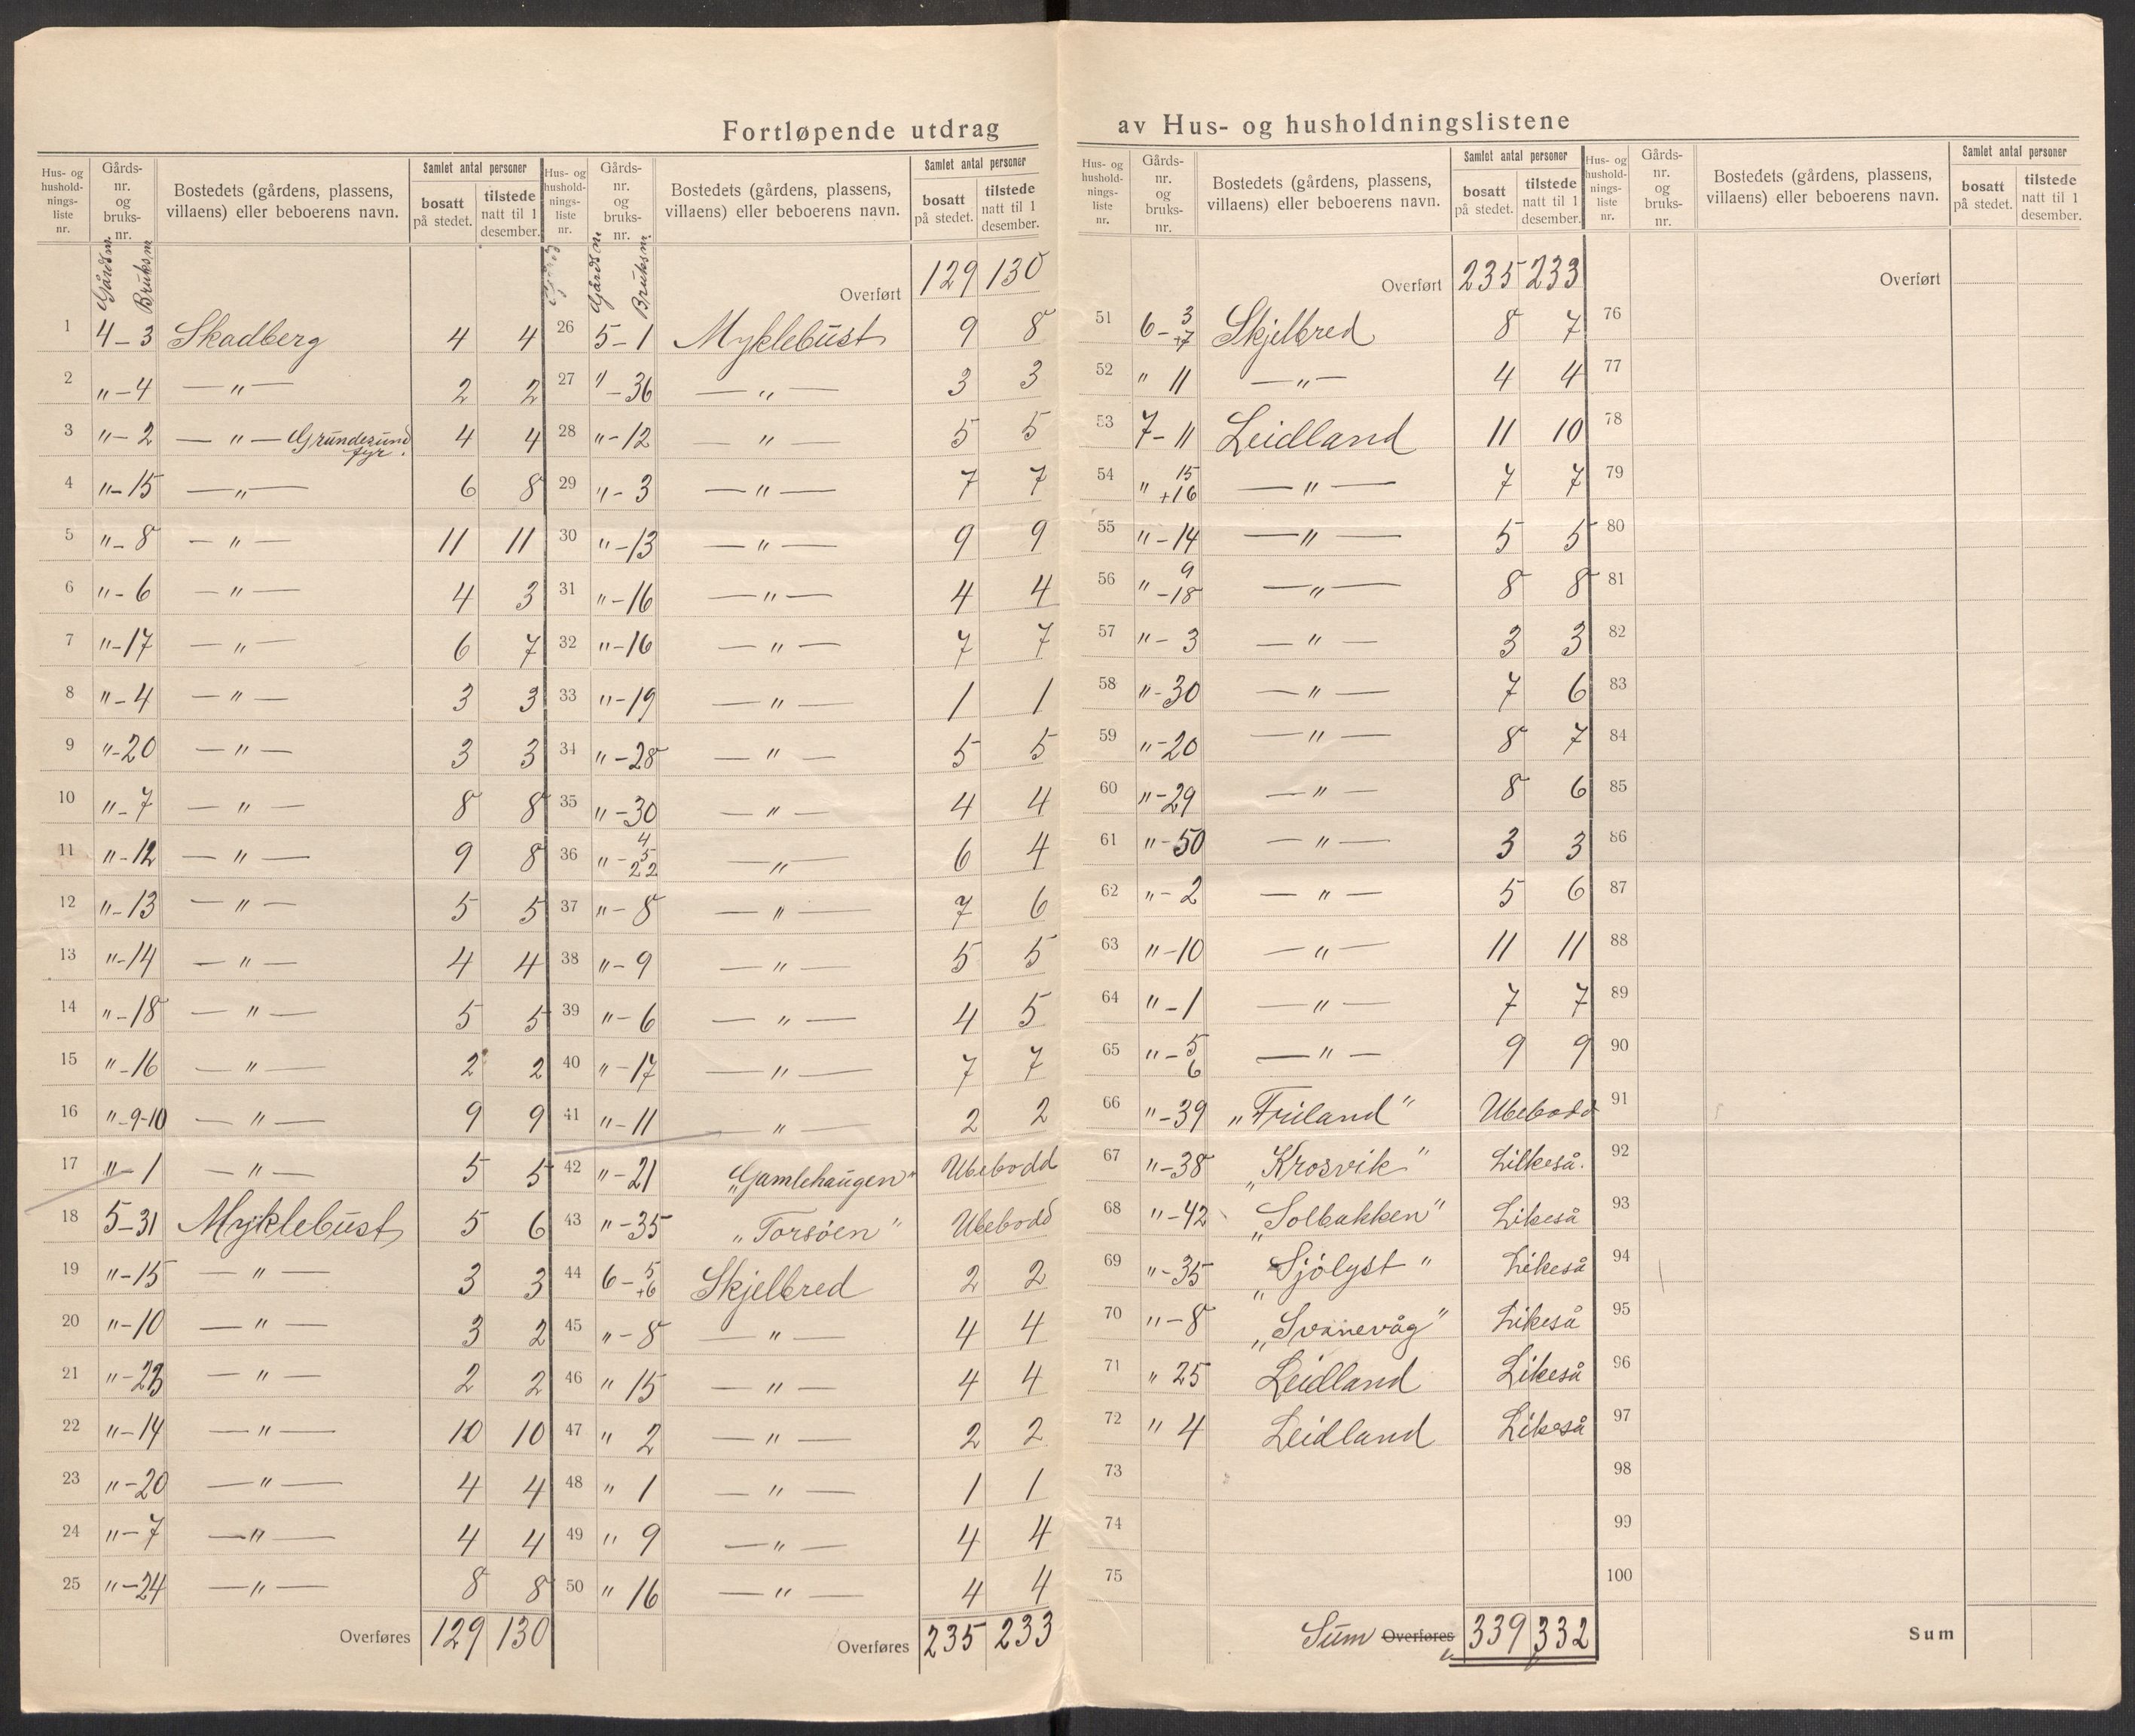 Fortløpende utdrag av Hus- og husholdningslistene
Hus- og hushold- nings- liste nr. | Gårds- nr. og bruks- nr. | Bostedets (gårdens, plassens, villaens) eller beboerens navn. | Samlet antal personer | bosatt på stedet. | tilstede natt til 1 desember.
Gårdsnr. Bruksnr.
1 4-3 Skadberg 4 4
2 "-4 —"— 2 2
3 "-2 —"— Grundesund fyr. 4 4
4 "-15 —"— 6 8
5 "-8 —"— 11 11
6 "-6 —"— 4 3
7 "-17 —"— 6 7
8 "-4 —"— 3 3
9 "-20 —"— 3 3
10 "-7 —"— 8 8
11 "-12 —"— 9 8
12 "-13 —"— 5 5
13 "-14 —"— 4 4
14 "-18 —"— 5 5
15 "-16 —"— 2 2
16 "-9-10 —"— 9 9
17 "-1 —"— 5 5
18 5-31 Myklebust 5 6
19 "-15 —"— 3 3
20 "-10 —"— 3 2
21 "-23 —"— 2 2
22 "-14 —"— 10 10
23 "-20 —"— 4 4
24 "-7 —"— 4 4
25 "-24 —"— 8 8
Overføres 129 130
Hus- og hushold- nings- liste nr. | Gårds- nr. og bruks- nr. | Bostedets (gårdens, plassens, villaens) eller beboerens navn. | Samlet antal personer | bosatt på stedet. | tilstede natt til 1 desember.
Gårdsnr. Bruksnr.
Overført 129 130
26 5-1 Myklebust 9 8
27 "-36 —"— 3 3
28 "-12 —"— 5 5
29 "-3 —"— 7 7
30 "-13 —"— 9 9
31 "-16 —"— 4 4
32 "-16 —"— 7 7
33 "-19 —"— 1 1
34 "-28 —"— 5 5
35 "-30 —"— 4 4
36 "-4 5 22 —"— 6 4
37 "-8 —"— 7 6
38 "-9 —"— 5 5
39 "-6 —"— 4 5
40 "-17 —"— 7 7
41 "-11 " 2 2
42 "-21 „Gamlehaugen" Ubebodd
43 "-35 „Torsöen" Ubebodd
44 6-5 +6 Skjelbred 2 2
45 "-8 —"— 4 4
46 " 15 —"— 4 4
47 " 2 —"— 2 2
48 " 1 —"— 1 1
49 " 9 —"— 4 4
50 " 16 —"— 4 4
Overføres 235 233
Hus- og hushold- nings- liste nr. | Gårds- nr. og bruks- nr. | Bostedets (gårdens, plassens, villaens) eller beboerens navn. | Samlet antal personer | bosatt på stedet. | tilstede natt til 1 desember.
Overført 235 233
51 6-3 +7 Skjelbred 8 7
52 " 11 —"— 4 4
53 7-11 Leidland 11 10
54 " 15 +16 —"— 7 7
55 "-14 —"— 5 5
56 " 9 -18 —"— 8 8
57 "-3 —"— 3 3
58 "-30 —"— 7 6
59 "-20 —"— 8 7
60 "-29 —"— 8 6
61 "-50 —"— 3 3
62 "-2 —"— 5 6
63 "-10 —"— 11 11
64 "-1 —"— 7 7
65 "-5 6 —"— 9 9
66 "-39 „Friland" Ubebodd
67 "-38 „Krosvik" Lilkeså.
68 "-42 „Solbakken" Likeså
69 "-35 „Sjölyst" Likeså
70 "-8 „Svanevåg" Likeså
71 " 25 Leidland Likeså
72 " 4 Leidland Likeså
73
74
75
Sum Overføres 339 332
Hus- og hushold- nings- liste nr. | Gårds- nr. og bruks- nr. | Bostedets (gårdens, plassens, villaens) eller beboerens navn. | Samlet antal personer | bosatt på stedet. | tilstede natt til 1 desember.
Overført
76
77
78
79
80
81
82
83
84
85
86
87
88
89
90
91
92
93
94
95
96
97
98
99
100
Sum